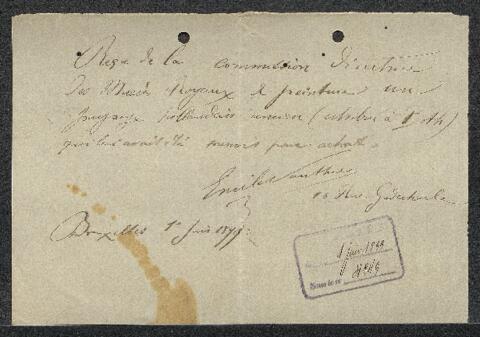 Reçu de la commission directrice
des Musées royaux de peinture un
paysage hollandais ancien (attribué à Both)
qui lui avait été soumis pour achat.
Emile Gauthier
16 Rue
Bruxelles 1er Juin 1899
1 juin 1899
Numéro